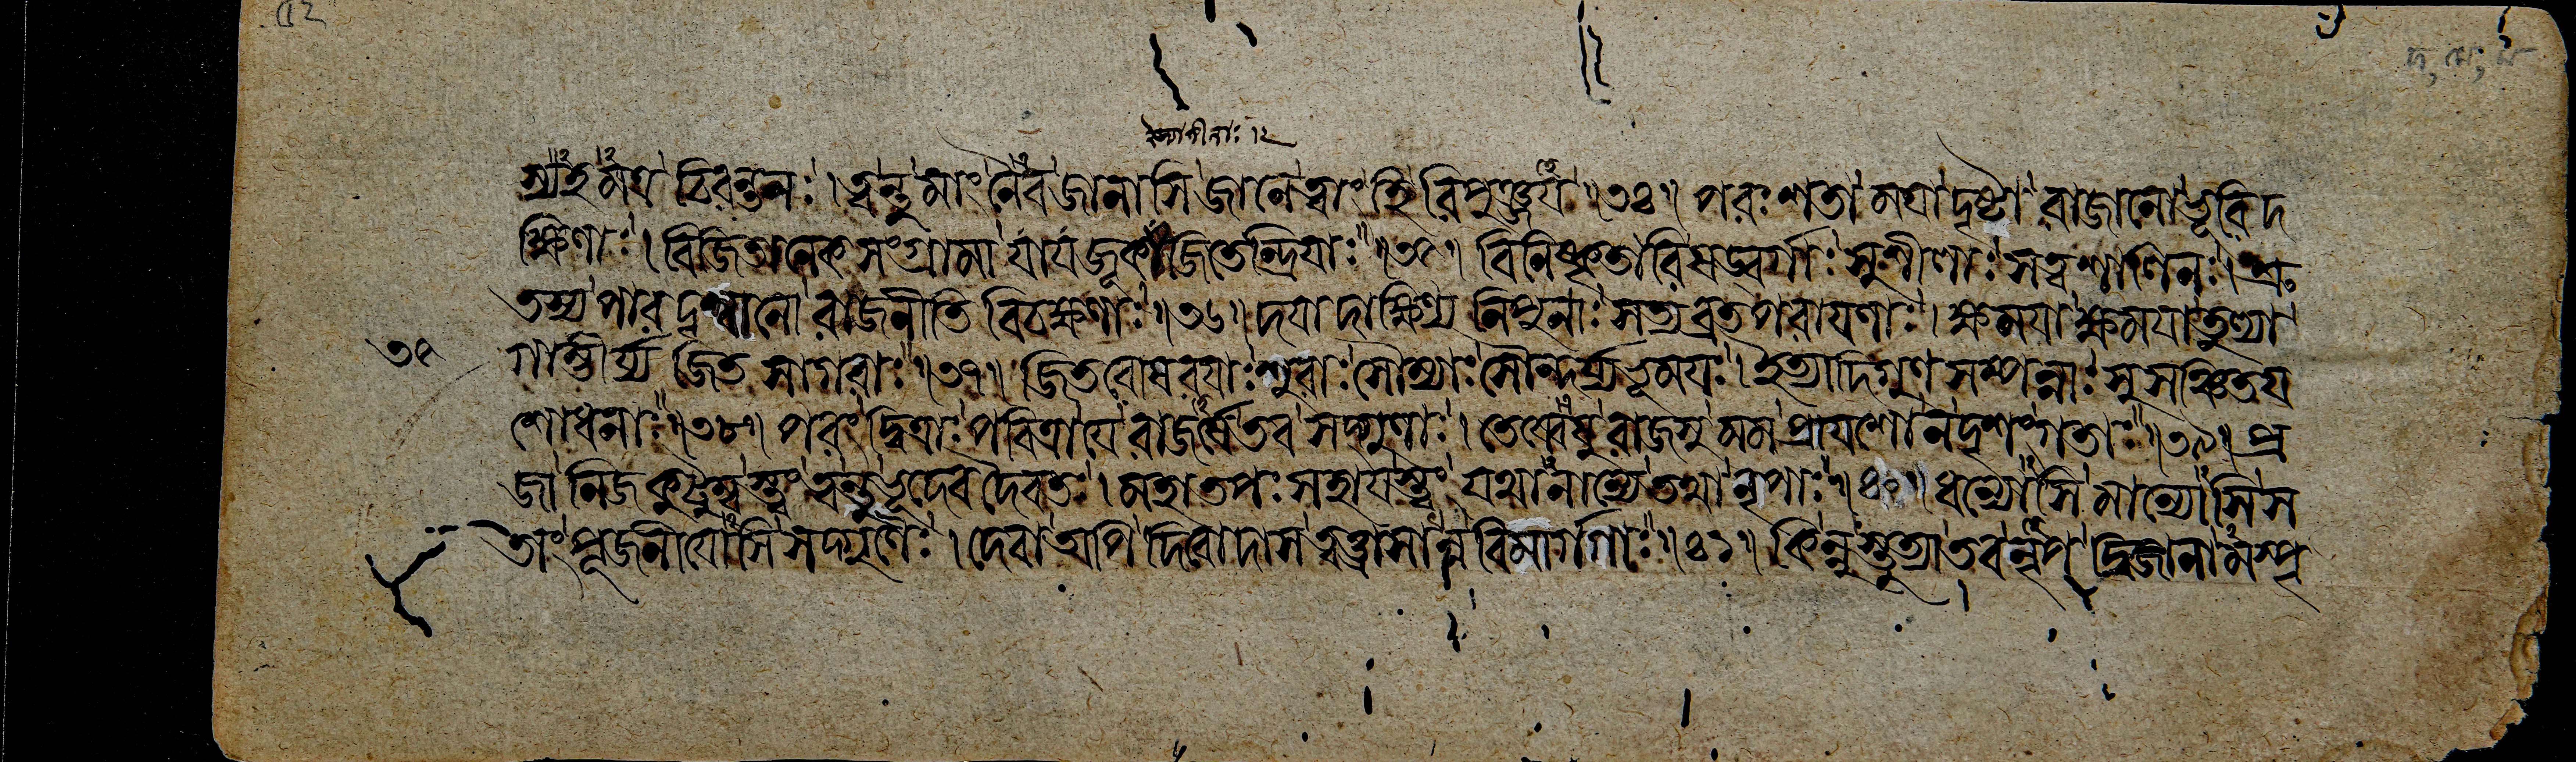 ত্যহমত্র চিরন্তনঃ। ত্বন্তু মাং নৈব জানাসি জানে ত্বাং হি রিপুঞ্জয়॥৩৪॥ পরঃশতা ময়া দৃষ্টা রাজানো ভূরিদ
ক্ষিণাঃ। বিজিতানেকসংগ্রামা যাযজূকা জিতেন্দ্রিয়াঃ॥৩৫॥ বিনিষ্কৃতারিষড্বর্গাঃ সুশীলাঃ সত্ত্বশালিনঃ। শ্রু
তস্য পারদৃশ্বানো রাজনীতিবিচক্ষণাঃ॥৩৬॥ দয়াদাক্ষিণ্যনিপুনাঃ সত্যব্রতপরায়ণাঃ। ক্ষময়া ক্ষময়া তুল্যা
গাম্ভীর্য্যজিতসাগরাঃ॥৩৭॥ জিতরোষরয়াঃ শূরাঃ সৌম্যাঃ সৌন্দর্য্যভূময়ঃ। ইত্যাদিগুণসম্পন্নাঃ সুসঞ্চিতয
শোধনাঃ॥৩৮॥ পরং দ্বিত্রাঃ পবিত্রা যে রাজর্ষে তব সদ্গুণাঃ। তেষ্বেষু রাজসু মম প্রায়শো ন দৃশং গতাঃ॥৩৯॥ প্র
জানিজকুটুম্বস্ত্বং ত্বন্তু ভূদেবদৈবতঃ। মহাতপঃসহায়স্ত্বং যথা নান্যে তথা নৃপাঃ॥৪০॥ ধন্যোসি মান্যোসি স
তাং পূজনীয়োসি সদ্গুণৈঃ। দেবা অপি দিবোদাস ত্বত্ত্রাসান্ন বিমার্গগাঃ॥৪১॥ কিন্নু স্তুত্যা তব নৃপ দ্বিজানামস্পৃ